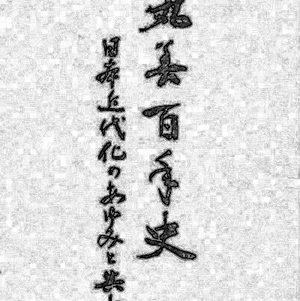 丸善百年史
日本近代化のあゆみと共に